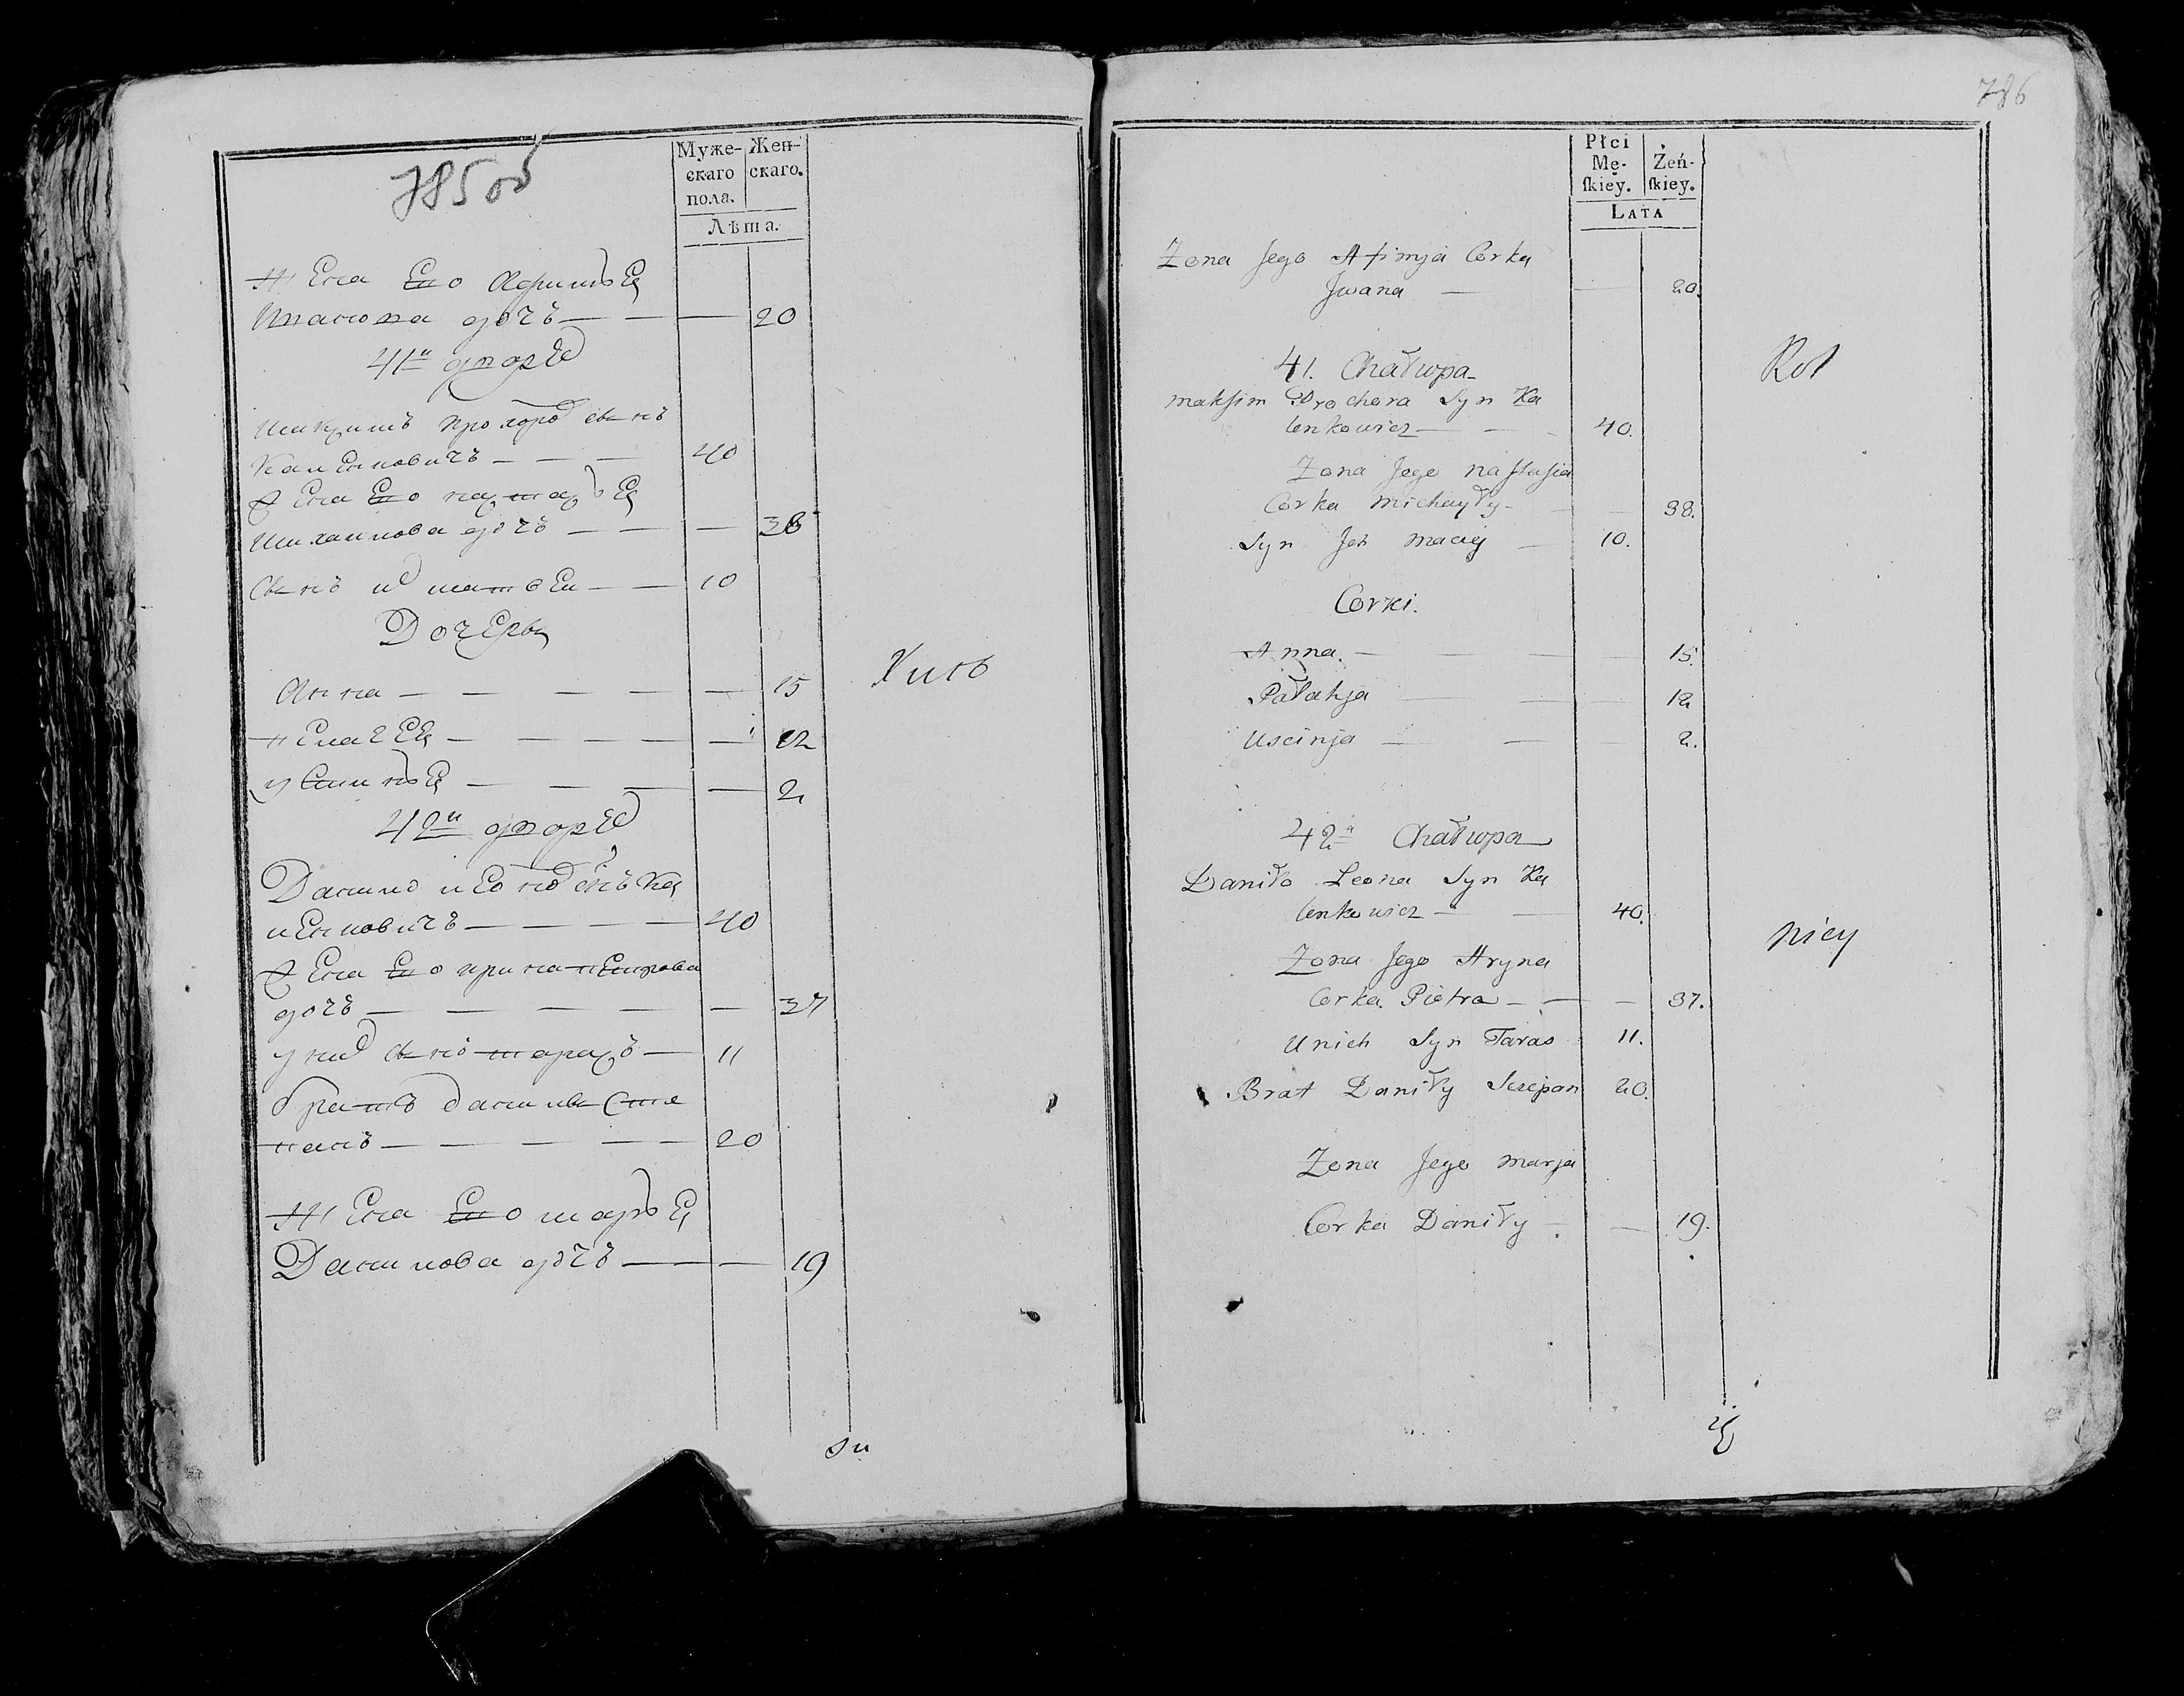 785 об
Муже-
скаго
пола.
Жен-
скаго.
Лѣта.
Жена Его Афимья
Иванова дочь — — — 20
41й дворъ
Макѣимъ прохоровъ сынъ
Каленковичъ — — — 40
Жена Его настасья
Михаилова дочь — — — 38
Сынъ ихъ матвеи — — 10
Дочери
Анна — — — — — 15
пелагея — — — — — 12
устинья — — — — 2
42й дворъ
Данило леоновъ снъ Ка
ленковичъ — — — — 40
Жена Его ирина петрова
дочь — — — — — 37
у нихъ сынъ тарасъ — 11
братъ данилы Сте
панъ — — — — — 20
Жена Его марья
Данилова дочь — — — 19
786
Płci
Mę-
ſkiey.
Żeń-
ſkiey.
LATA
Zona Jego Afimja Corka
Jwana — — 20.
41. Chałupa
Maksim Prochora Syn Ka
lenkowicz — — - 40.
Zona Jego nastasia
Corka Michayły - — — 38.
Syn Jch Maciey — 10.
Corki.
Anna. — — — 15.
Pałahja — — — 12
Uscinja — — — 2.
42a Chałupa
Daniło Leona Syn Ka
lenkowicz — — 40.
Zona Jego Aryna
Corka Pietra — — — 37.
Unich Syn Taras 11.
Brat Daniły Sczepan 20.
Zona Jego Marja
Corka Daniły — — 19.